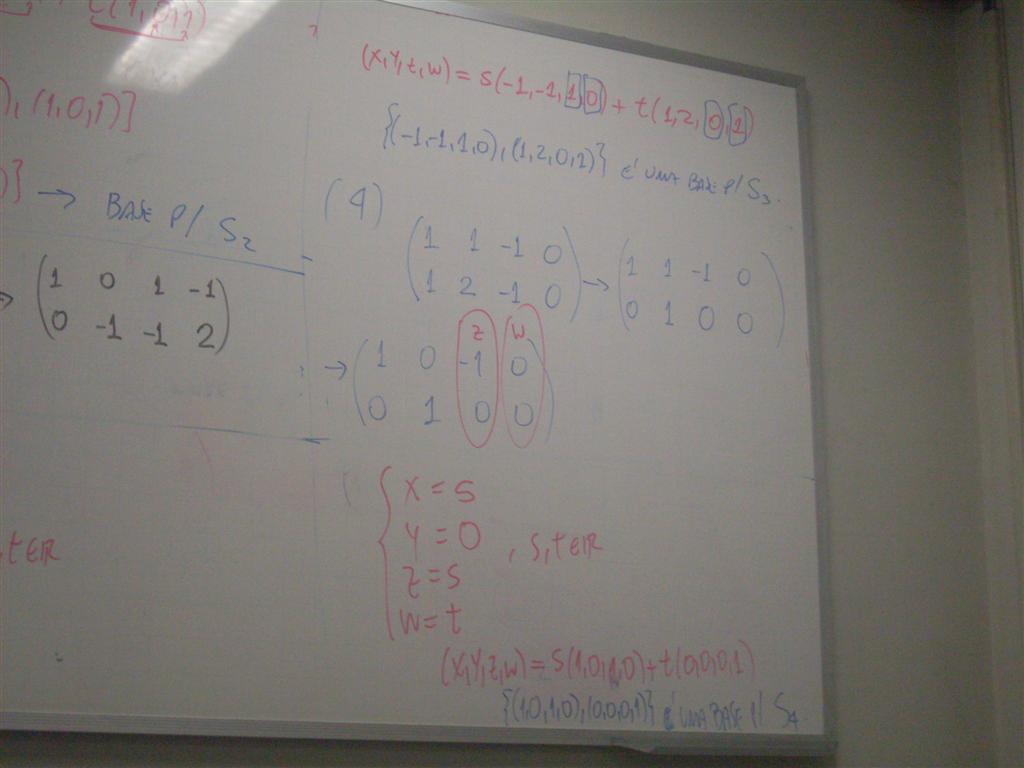 ), (1,0,1)]
)} → BASE P/ S₂
→ (1 0 1 -1
0 -1 -1 2)
,t∈IR
(X,Y,Z,W) = S(-1,-1,1,0) + t(1,2,0,1)
{(-1,-1,1,0), (1,2,0,1)} É UMA BASE P/ S₃.
(4)
(1 1 -1 0
1 2 -1 0) → (1 1 -1 0
0 1 0 0)
Z W
→ (1 0 -1 0
0 1 0 0)
{ X = S
Y = 0 , S,t∈IR
Z = S
W = t
(X,Y,Z,W) = S(1,0,1,0) + t(0,0,0,1)
{(1,0,1,0), (0,0,0,1)} É UMA BASE P/ S₄